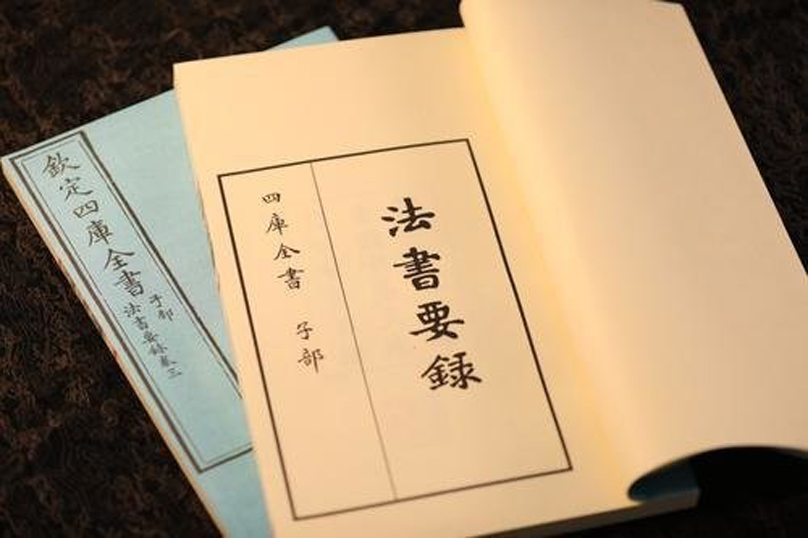 法書要録
四庫全書 子部
欽定四庫全書
子部
法書要録卷三